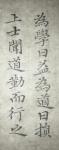 為學日益為道日損
上士聞道勤而行之